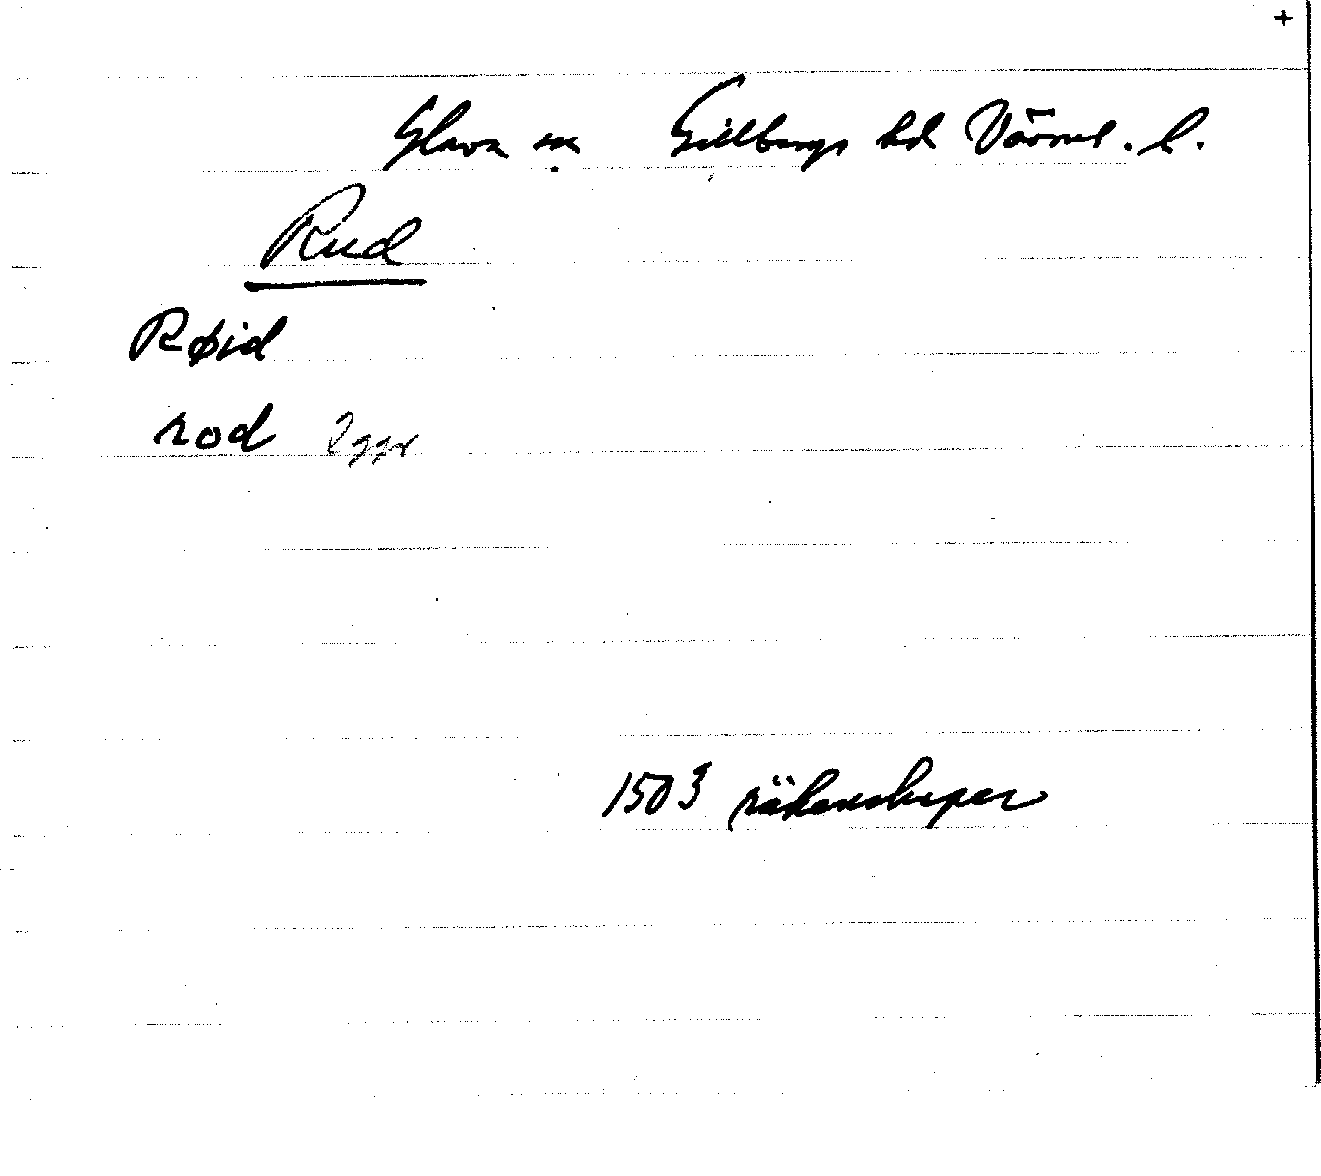 +
Glava sn Gillbergs hd Värml. l.
Rud
Røid
rod 2 ggr
1503 räkenskaper